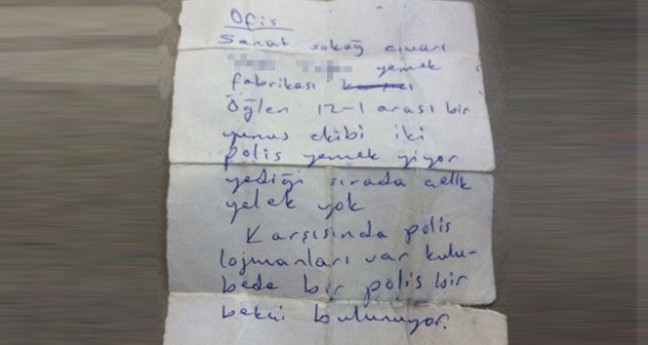 Ofis
Sanat sokağ civarı
yemek
fabrikası
Öğlen 12-1 arası bir
yunus ekibi iki
polis yemek yiyor
yediği sırada çelik
yelek yok
Karşısında polis
lojmanları var kulu-
bede bir polis bir
bekçi bulunuyor.